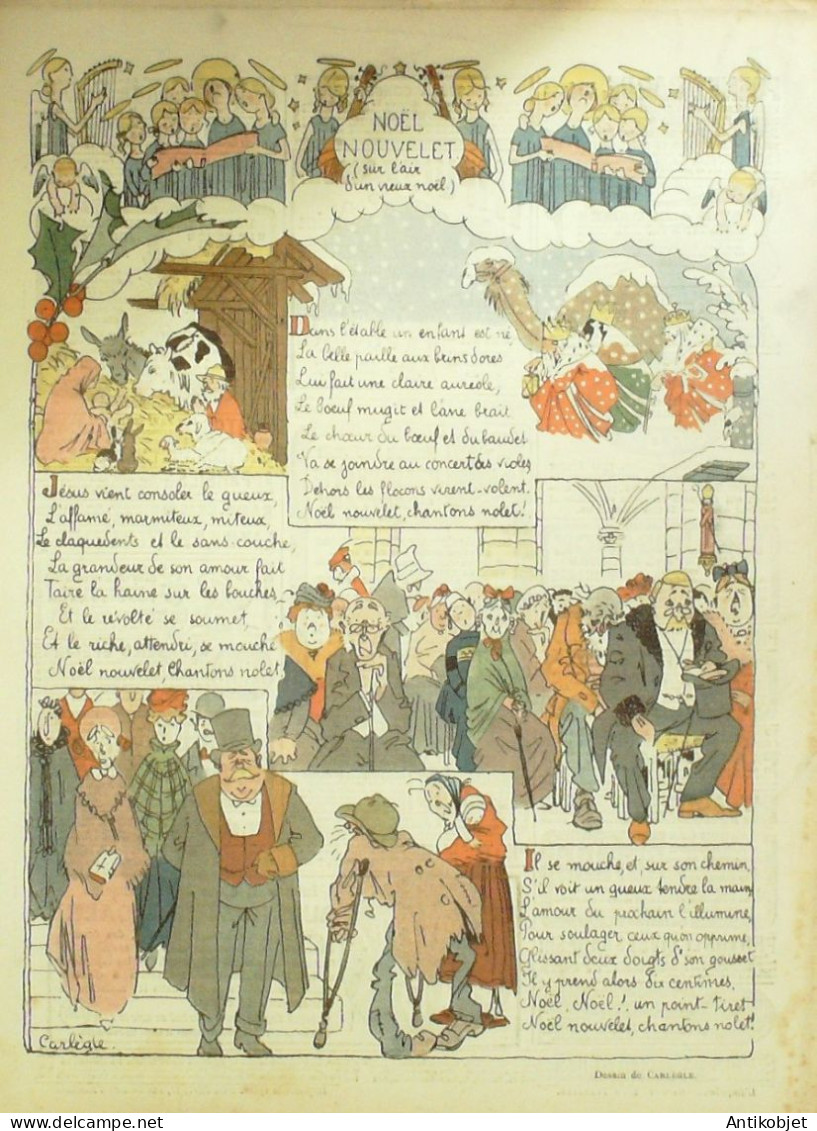 NOËL
NOUVELET
(sur l'air
d'un vieux noël)
Dans l'étable un enfant est né
La belle paille aux brins dorés
Lui fait une claire auréole,
Le bœuf mugit et l'âne brait
Le chœur du bœuf et du baudet
Va se joindre au concert des violes
Dehors les flocons virent-volent.
Noël nouvelet, chantons nolet!
Jésus vient consoler le gueux,
L'affamé, marmiteux, miteux,
Le claquedents et le sans-couche,
La grandeur de son amour fait
Taire la haine sur les bouches
Et le révolté se soumet,
Et le riche, attendri, se mouche
Noël nouvelet, Chantons nolet.
Il se mouche, et, sur son chemin,
S'il voit un gueux tendre la main
L'amour du prochain l'illumine,
Pour soulager ceux qu'on opprime,
Glissant deux doigts d's'on gousset
Il y prend alors dix centimes.
Noël, Noël!, un point-tiret
Noël nouvelet, chantons nolet!
Carlègle.
Dessin de CARLÈGLE.
www.antikobjet.com
Antikobjet